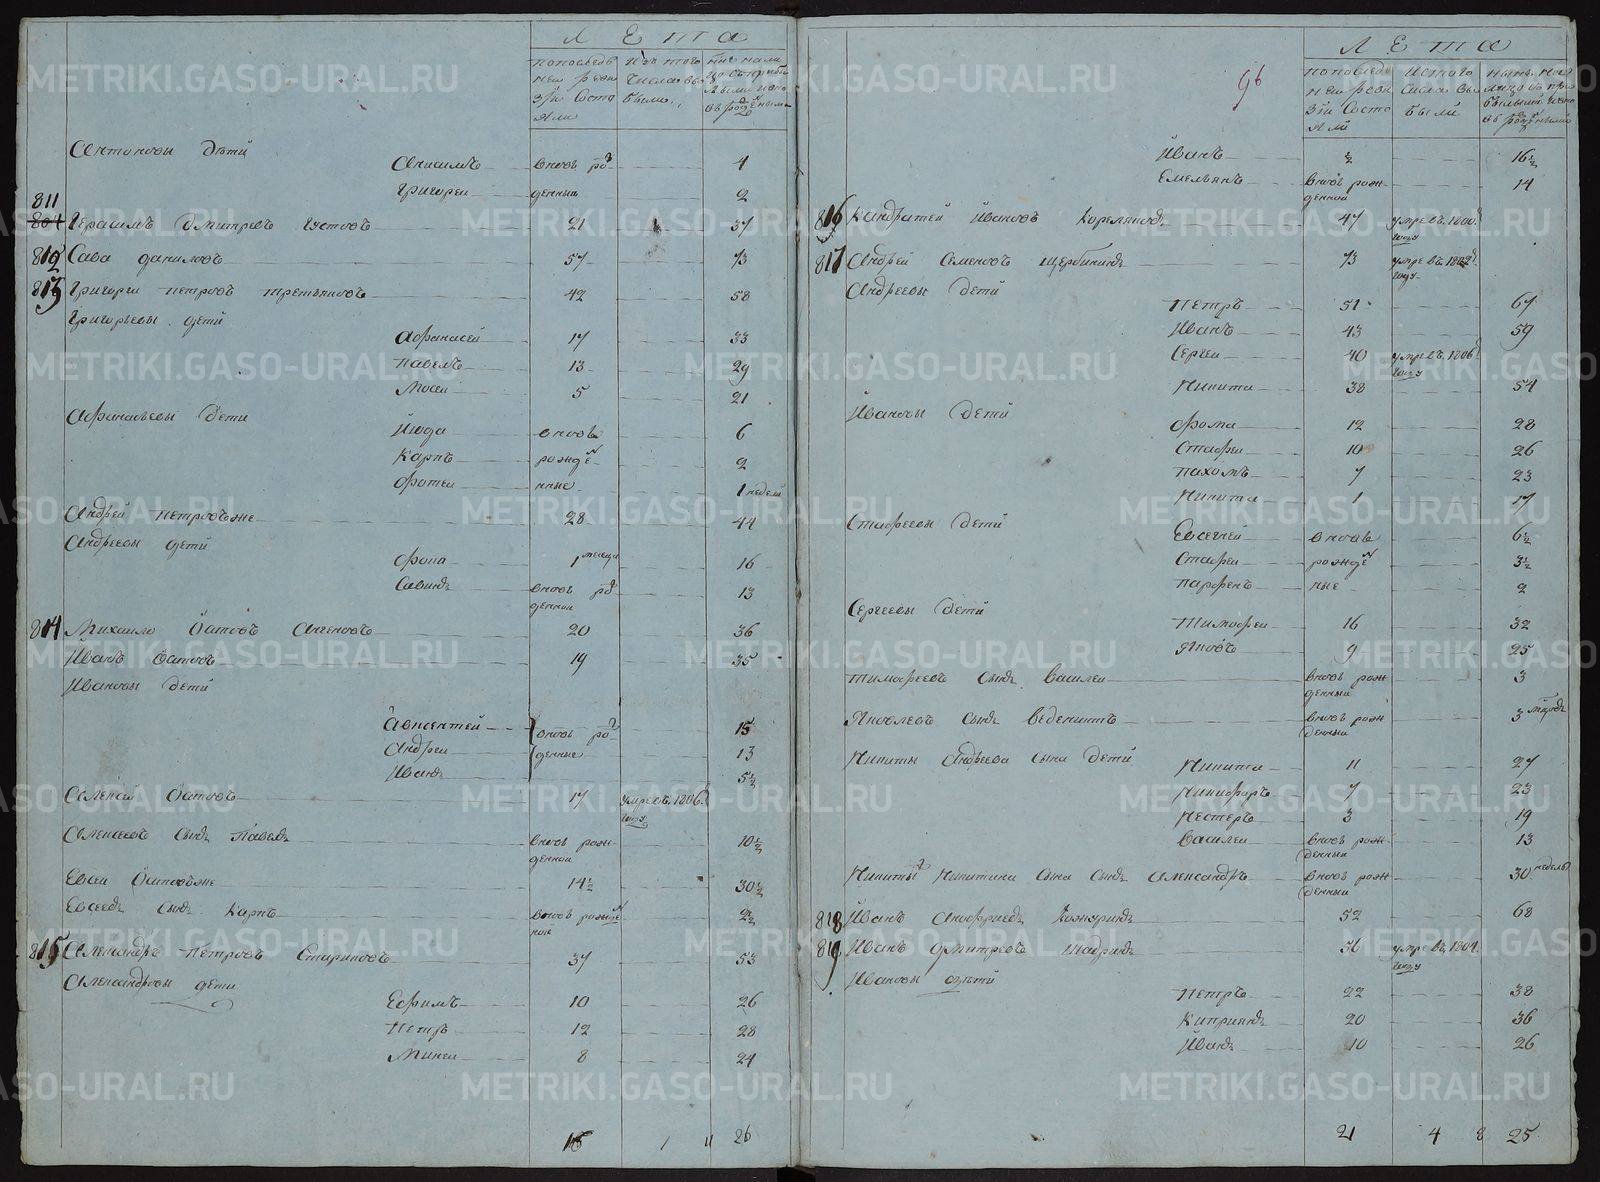 Лета
по последней ревизии состояли
из того числа выбыли
ныне на лицо с прибылыми и вновь рожденными
Антоновы дѣти
Анисимъ вновь рож 4
Григореи денныя 2
811
804 Герасимъ Дмитревъ 21 37
812 Сава Даниловъ 57 73
813 Григореи Петровъ Третьяковъ 42 58
Григорьевы дети
Афонасей 17 33
Павелъ 13 29
Мосеи 5 21
Афонасьевы дети
Июда вновь 6
Карпъ рожде 2
Фотеи нные 1 недели
Андрей Петровъ же 28 44
Андреевы дети
1 месеца 16
Савинъ вновь рож 13
денной
814 Михаило 20 36
Иванъ 19 35
Ивановы дети
Авксентей 15
Андреи вновь рож денные 13
Иванъ 5½
Алексѣй 17 умре въ 1806 году
Алексеевъ сынъ Павелъ вновь рож 10½
денной
Евсеи 14½ 30½
Евсеевъ сынъ Карпъ вновь рожде 2½
ной
815 Александръ Петровъ Стариковъ 37 53
Александровы дети
Ефимъ 10 26
Петръ 12 28
Микеи 8 24
15 1 11 26
96
Лета
по последней ревизии состояли
ис того числа выбыли
ныне на лицо с прибылыми и вновь рожденными
Иванъ ½ 16½
Емельянъ вновь рож 14
денной
816 Кондратей Ивановъ 47 умре въ 1800 году
817 Андрей Семеновъ Щербининъ 73 умре въ 1802 году
Андреевы дети
Петръ 51 67
Иванъ 43 59
Сергеи 40 умре въ 1806 году
Никита 38 54
Ивановы дети
Фома 12 28
Стафеи 10 26
Пахомъ 7 23
Никита 1 17
Стафеевы дети
Евсегней вновь 6½
Стафеи рожде 3½
Парфенъ ные 2
Сергеевы дети
Тимофеи 16 32
Яковъ 9 25
Тимофеевъ сынъ Василеи вновь рож 3
денныи
Яковлевъ сынъ Веденихтъ вновь рож 3
денныи
Никиты Андреева сына дети
Никита 11 27
Никифоръ 7 23
Нестеръ 3 19
Василеи вновь рож 13
денныи
Никиты Никитина сына сынъ Александръ вновь рож 30 недель
денныи
818 Иванъ 52 68
819 Иванъ Дмитревъ Шадринъ 56 умре въ 1804 году
Ивановы дѣти
Петръ 22 38
Киприянъ 20 36
Иванъ 10 26
21 4 8 25
METRIKI.GASO-URAL.RU